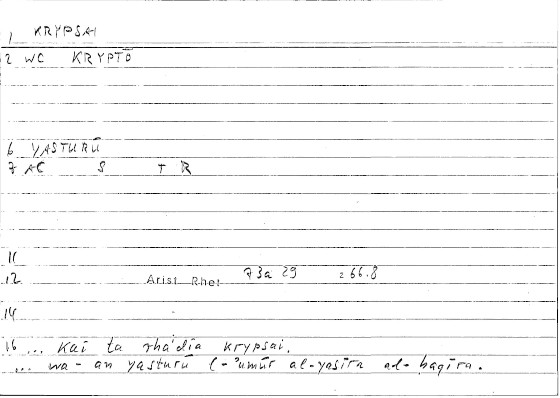 1 KRYPSAI
2 WC KRYPTŌ
6 YASTURŪ
7 AC S T R
11
12 Arist Rhet 73a 29 266.8
14
16 ... Kai ta rhá̄dia krypsai.
... wa-an yasturū l-'umūr al-yasīra al-ḥaqīra.